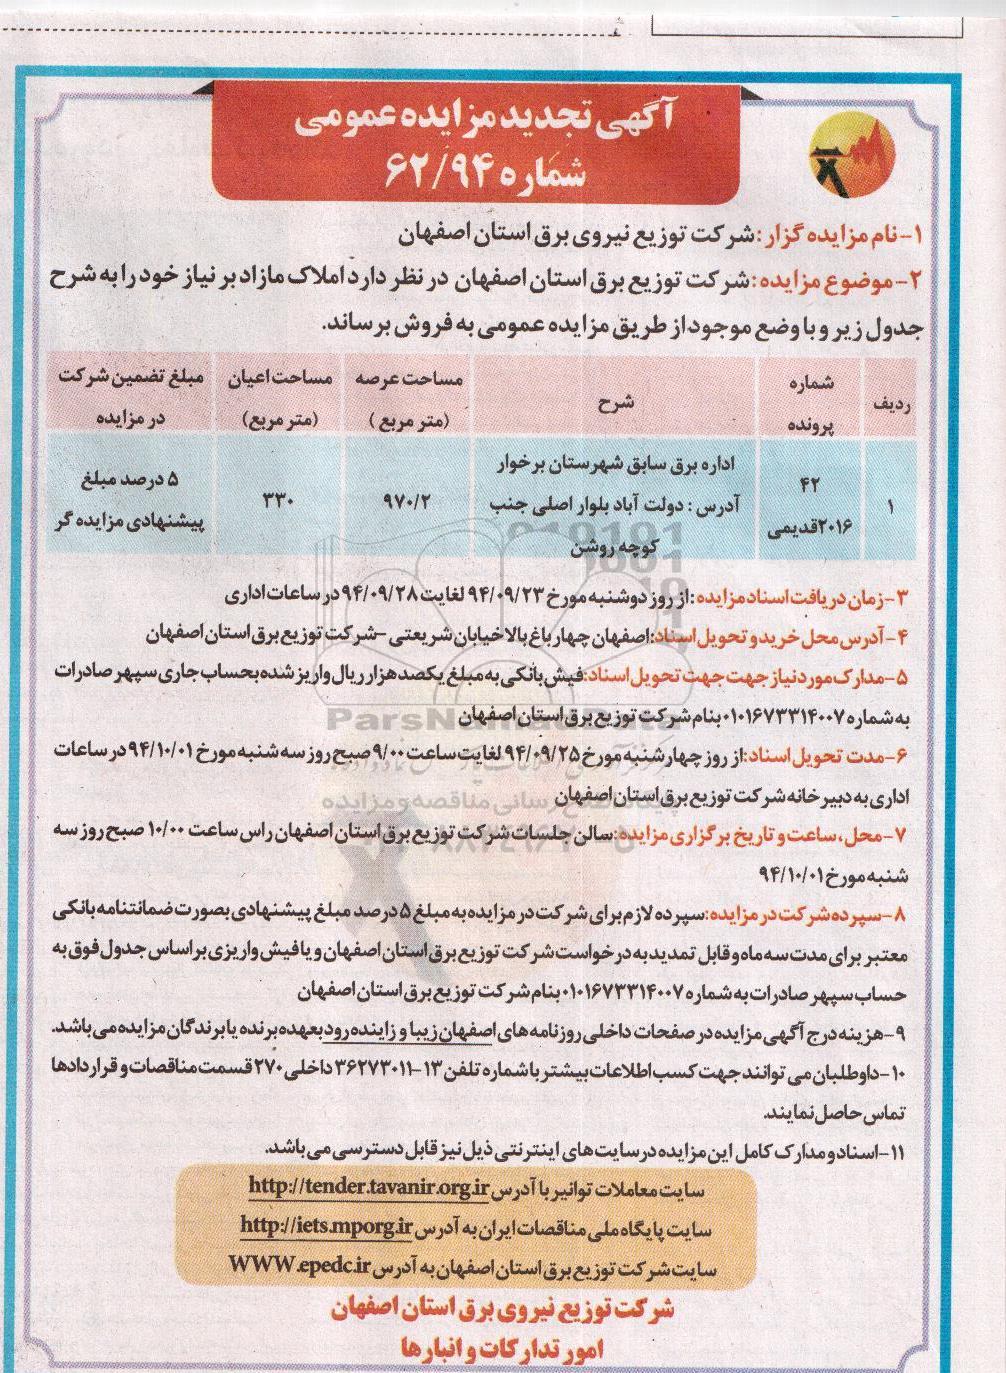 آگهی تجدید مزایده عمومی
شماره ۶۲/۹۴
۱-نام مزایده گزار: شرکت توزیع نیروی برق استان اصفهان
۲-موضوع مزایده: شرکت توزیع برق استان اصفهان در نظر دارد املاک مازاد بر نیاز خود را به شرح
جدول زیر و با وضع موجود از طریق مزایده عمومی به فروش برساند.
ردیف
شماره
پرونده
شرح
مساحت عرصه
(متر مربع)
مساحت اعیان
(متر مربع)
مبلغ تضمین شرکت
در مزایده
۱
۴۲
۲۰۱۶قدیمی
اداره برق سابق شهرستان برخوار
آدرس : دولت آباد بلوار اصلی جنب
کوچه روشن
۹۷۰/۲
۳۳۰
۵ درصد مبلغ
پیشنهادی مزایده گر
۳-زمان دریافت اسناد مزایده: از روز دوشنبه مورخ ۹۴/۰۹/۲۳ لغایت ۹۴/۰۹/۲۸ در ساعات اداری
۴-آدرس محل خرید و تحویل اسناد: اصفهان چهارباغ بالا خیابان شریعتی -شرکت توزیع برق استان اصفهان
۵-مدارک مورد نیاز جهت جهت تحویل اسناد: فیش بانکی به مبلغ یکصد هزار ریال واریز شده بحساب جاری سپهر صادرات
به شماره ۰۱۰۱۶۷۳۳۱۴۰۰۷ بنام شرکت توزیع برق استان اصفهان
ParsNamadData
۶-مدت تحویل اسناد: از روز چهارشنبه مورخ ۹۴/۰۹/۲۵ لغایت ساعت ۹/۰۰ صبح روز سه شنبه مورخ ۹۴/۱۰/۰۱ در ساعات
اداری به دبیرخانه شرکت توزیع برق استان اصفهان
۷-محل، ساعت و تاریخ برگزاری مزایده: سالن جلسات شرکت توزیع برق استان اصفهان راس ساعت ۱۰/۰۰ صبح روز سه
شنبه مورخ ۹۴/۱۰/۰۱
۸-سپرده شرکت در مزایده: سپرده لازم برای شرکت در مزایده به مبلغ ۵ درصد مبلغ پیشنهادی بصورت ضمانتنامه بانکی
معتبر برای مدت سه ماه و قابل تمدید به درخواست شرکت توزیع برق استان اصفهان و یا فیش واریزی بر اساس جدول فوق به
حساب سپهر صادرات به شماره ۰۱۰۱۶۷۳۳۱۴۰۰۷ بنام شرکت توزیع برق استان اصفهان
۹-هزینه درج آگهی مزایده در صفحات داخلی روزنامه های اصفهان زیبا و زاینده رود بعهده برنده یا برندگان مزایده می باشد.
۱۰-داوطلبان می توانند جهت کسب اطلاعات بیشتر با شماره تلفن ۱۳-۳۶۲۷۳۰۱۱ داخلی ۲۷۰ قسمت مناقصات و قراردادها
تماس حاصل نمایند.
۱۱-اسناد و مدارک کامل این مزایده در سایت های اینترنتی ذیل نیز قابل دسترسی می باشد.
سایت معاملات توانیر با آدرس http://tender.tavanir.org.ir
سایت پایگاه ملی مناقصات ایران به آدرس http://iets.mporg.ir
سایت شرکت توزیع برق استان اصفهان به آدرس WWW.epedc.ir
شرکت توزیع نیروی برق استان اصفهان
امور تدارکات و انبارها